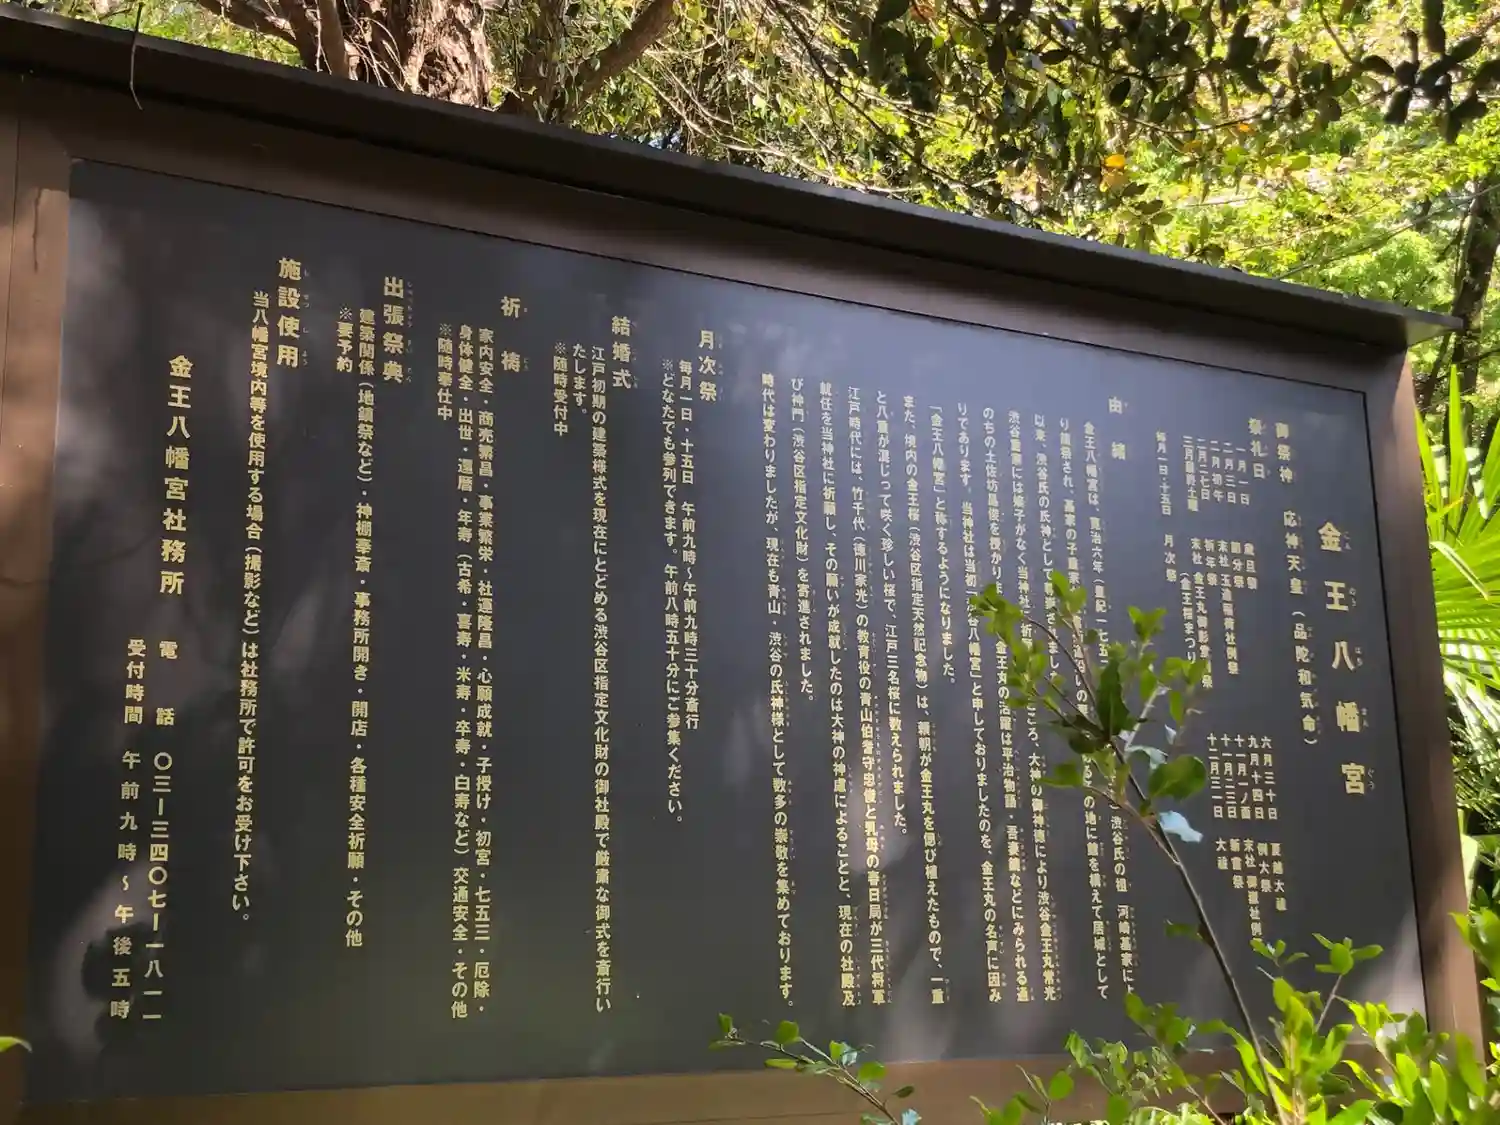 金王八幡宮
御祭神 応神天皇（品陀和気命）
祭礼日
一月一日 歳旦祭
二月三日 節分祭
二月初午 末社 玉造稲荷社例祭
二月二七日 祈年祭
三月最終土曜 末社 金王丸御影堂例祭
（金王桜まつり
毎月一日・十五日 月次祭
六月三十日 夏越大祓
九月十四日 例大祭
十一月一ノ酉 末社 御嶽社例
十一月二三日 新嘗祭
十二月三一日 大祓
由緒
金王八幡宮は、寛治六年（皇紀一七五 渋谷氏の祖 河崎基家によ
り創祭され、嘉家の子重家 の地に館を構えて居城として
以来、渋谷氏の氏神として ました
渋谷重家には嫡子がなく当神社に祈 ころ、大神の御神徳により渋谷金王丸常光
のちの土佐坊昌俊を授かりま 金王丸の活躍は平治物語・吾妻鏡などにみられる通
りであります。当神社は当初「渋谷八幡宮」と申しておりましたのを、金王丸の名声に因み
「金王八幡宮」と称するようになりました。
また、境内の金王桜（渋谷区指定天然記念物）は、頼朝が金王丸を偲び植えたもので、一重
と八重が混じって咲く珍しい桜で、江戸三名桜に数えられました。
江戸時代には、竹千代（徳川家光）の教育役の青山伯耆守忠俊と乳母の春日局が三代将軍
就任を当神社に祈願し、その願いが成就したのは大神の神慮によることと、現在の社殿及
び神門（渋谷区指定文化財）を寄進されました。
時代は変わりましたが、現在も青山・渋谷の氏神様として数多の崇敬を集めております。
月次祭
毎月一日・十五日 午前九時～午前九時三十分斎行
※どなたでも参列できます。午前八時五十分にご参集ください。
結婚式
江戸初期の建築様式を現在にとどめる渋谷区指定文化財の御社殿で厳粛な御式を斎行い
たします。
※随時受付中
祈祷
家内安全・商売繁昌・事業繁栄・社運隆昌・心願成就・子授け・初宮・七五三・厄除・
身体健全・出世・還暦・年寿（古希・喜寿・米寿・卒寿・白寿など）交通安全・その他
※随時奉仕中
出張祭典
建築関係（地鎮祭など）・神棚奉斎・事務所開き・開店・各種安全祈願・その他
※要予約
施設使用
当八幡宮境内等を使用する場合（撮影など）は社務所で許可をお受け下さい。
金王八幡宮社務所
電話 〇三ー三四〇七ー一八一一
受付時間 午前九時～午後五時